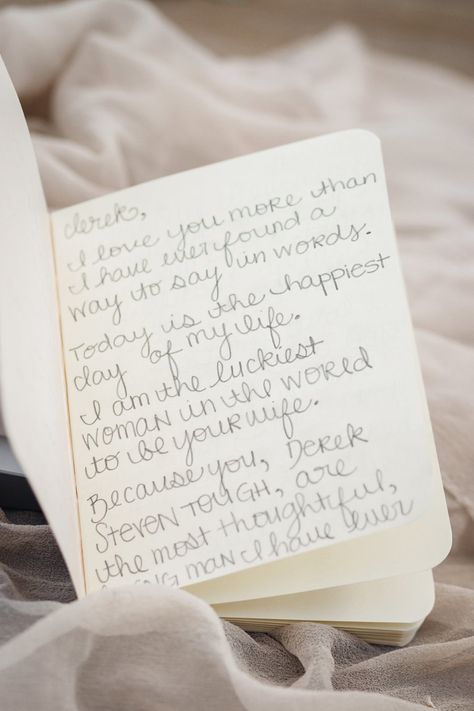 derek,
I love you more than
I have ever found a
way to say in words.
Today is the happiest
day of my life.
I am the luckiest
woman in the world
to be your wife.
Because you, Derek
Steven Tough, are
the most thoughtful,
man I have ever